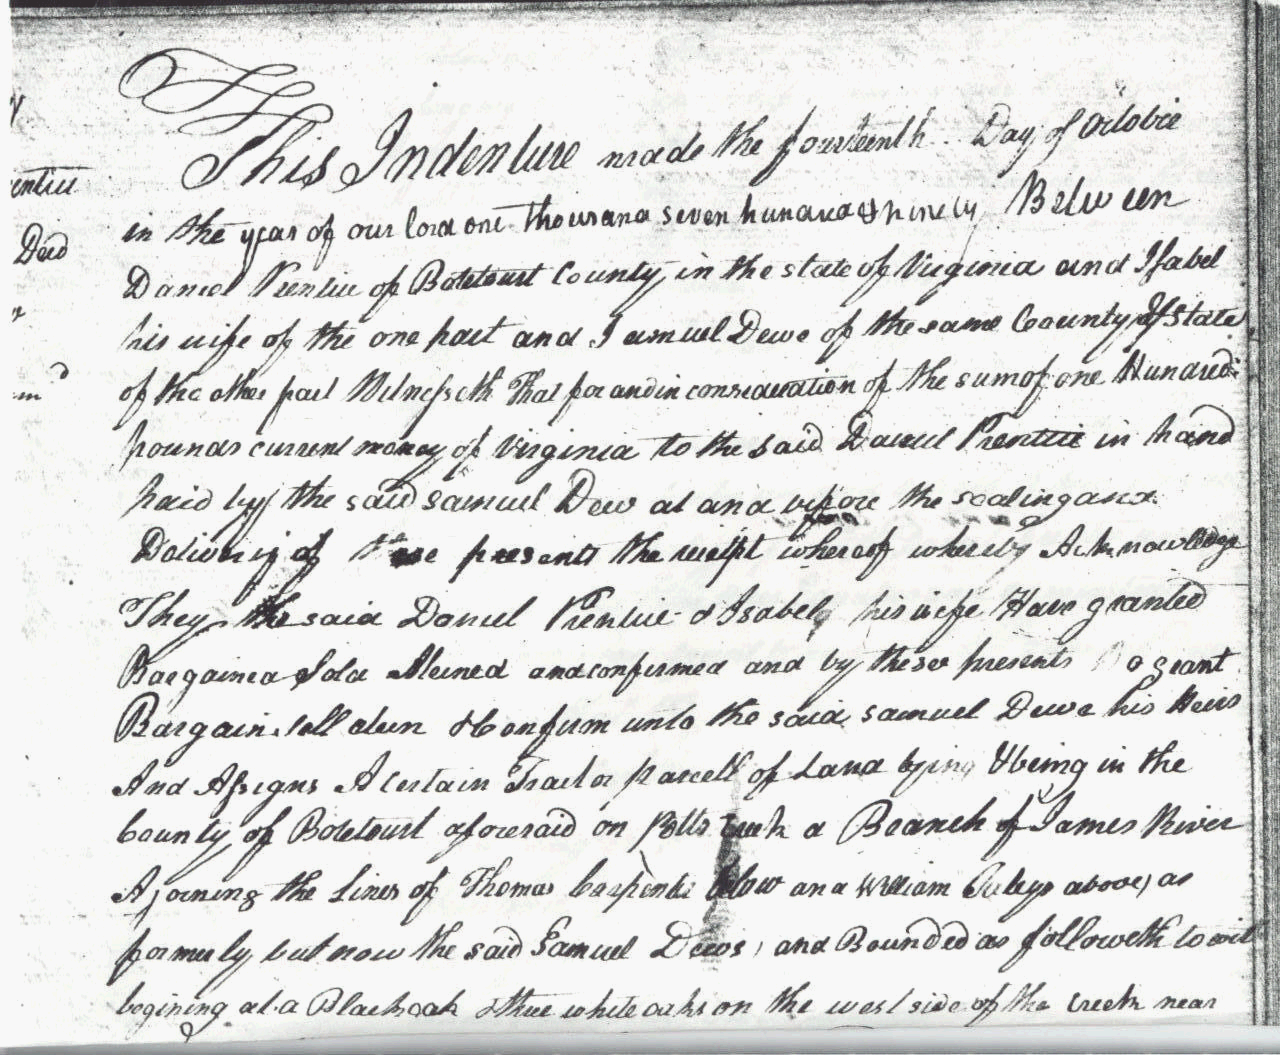 This Indenture made the fourteenth Day of Octobre
in the year of our lord one thousand seven hundred & ninety Between
Daniel Prentice of Botetourt County in the state of Virginia and Isabel
his wife of the one part and Samuel Dewe of the same County & State
of the other part Witnesseth That for and in consideration of the sum of one Hundred
pounds current money of Virginia to the said Daniel Prentice in hand
paid by the said Samuel Dew at and before the sealing and
Delivering of these presents the receipt whereof whereby Acknowledge
They the said Daniel Prentice & Isabel his wife Have granted
Bargained Sold Aliened and confirmed and by these presents Do grant
Bargain sell alien & Confirm unto the said Samuel Dewe his Heirs
And Assigns A Certain Tract or parcell of Land lying & being in the
County of Botetourt aforesaid on Potts Creek a Branch of James River
Ajoining the Lines of Thomas Carpenter below and William above as
formerly but now the said Samuel Dews and Bounded as followeth to wit
begining at a Black oak & three white oaks on the west side of the creek near
Deed